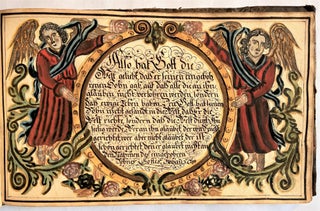 Also hat Gott die
Welt geliebt daß er seinen eingeboh
renen Sohn gab, auf daß alle die an ihn
glauben, nicht verlohren werden, sondern
das ewige Leben haben, Den Gott hat seinen
Sohn nicht gesandt in die Welt daß er die
Welt richte, sondern daß die Welt durch ihn
selig werde, Wer an ihn glaubet der wird nicht
gerichtet wer aber nicht glaubet der ist
schon gerichtet denn er glaubet nicht an
den Nahmen des eingebohrn
Sohnes Gottes.